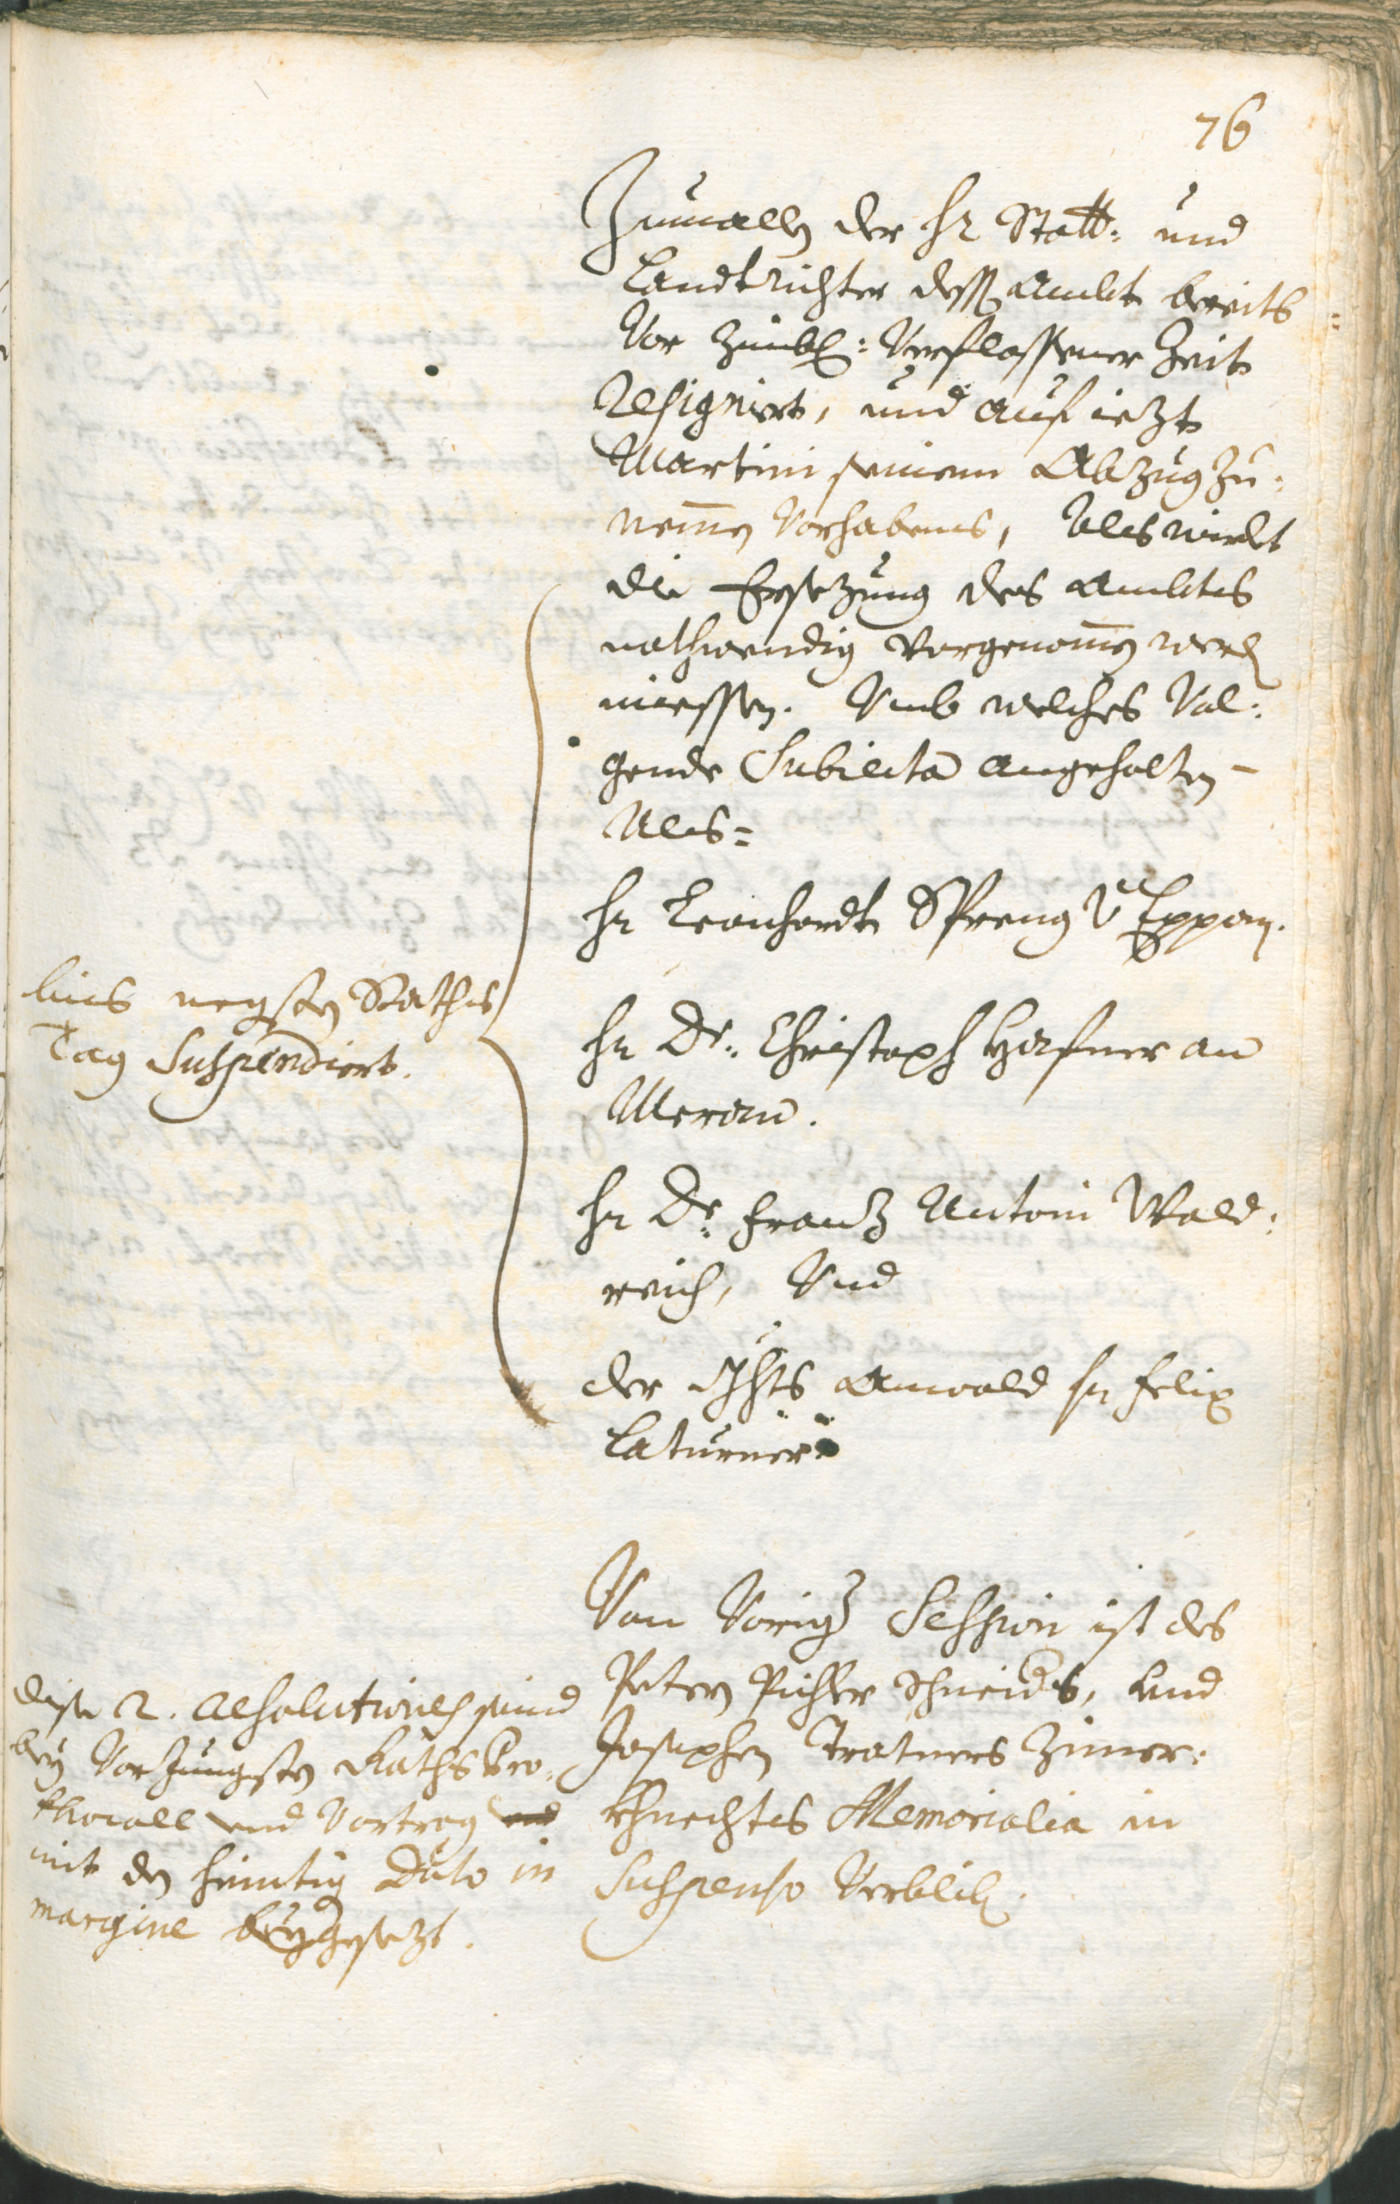 76
Zumallen der Hr Statt: und
Landtrichter dess Ambt bereits
vor zimbl: verflossener Zeit
resigniert, und auf iezt
Martini seinem Abzug zu:
nemen vorhabens, Als wirdt
die Ersezung des Ambtes
nothwendig vorgenomen werd
miessen. Vmb welches Vol:
gende Subiecta angehalten
Als=
Hr Leonhardt Spreng v Eppan.
Hr Dr: Christoph Hafner an
Meran.
Hr Dr: Franz Antoni Wald:
reich, Vnd
der Anwald Hr Felix
Laturner
bies negsten Raths
Tag Suspendiert.
Von voriger Session ist des
Peter Pichler Schneiders, und
Josephen Tratners Zimer:
khnechtes Memorialia in
Suspenso verblib.
dise 2. resolutiones seind
bey vorjungsten Raths Pro:
thocoll und Vortrag und
mit den heuntig Dato in
margine beygesezt.